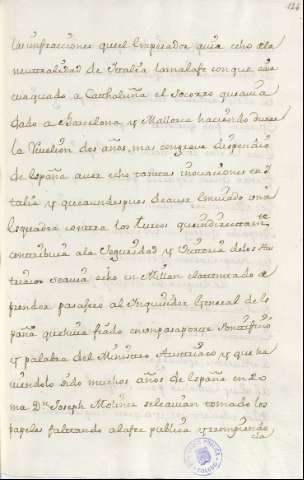 124
las infracciones que el Emperador avia echo a la
neutralidad de Ittalia la mala fe con que avia
evaquado a Cathaluña el Socorro que avia
dado a Barcelona y Mallorca haciendo durar
la Revelion dos años, mas con grave dispendio
de España aver echo tantas inovaciones en I
talia y que aun despues de aver Enviado una
Esquadra contra los turcos que indirectamte
contribuia a la Seguridad y Victoria de los Aus
triacos se avia echo en Milan el atentado de
prender pasafico al Inquisidor General de Es
paña que havia fiado en un pasaporte Pontificio
y palabra del Ministro Austriaco y que ha
viendolo sido muchos años de España en Ro
ma Dn Joseph Molines se le avian tomado los
papeles faltando a la fee publica y rompiendo